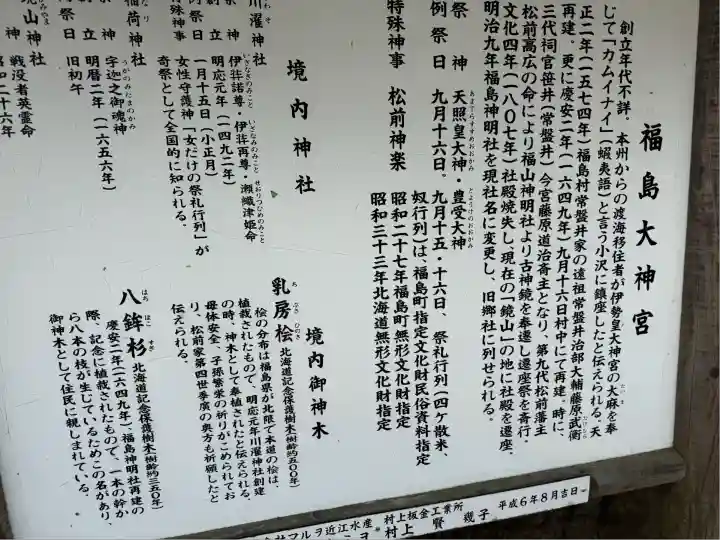 福島大神宮
創立年代不詳。本州からの渡海移住者が伊勢皇大神宮の大麻を奉
じて「カムイナイ」(蝦夷語)と言う小沢に鎮座したと伝えられる。天
正二年(一五七四年)福島村常盤井家の遠祖常盤井治部大輔藤原武衡
再建。更に慶安二年(一六四九年)九月十六日村中にて再建。時に、
三代祠官笹井(常盤井)今宮藤原道治斎主となり、第九代松前藩主
松前高広の命により福山神明社より古神鏡を奉遷し遷座祭を斎行。
文化四年(一八〇七年)社殿焼失し、現在の「鏡山」の地に社殿を遷座、
明治九年福島神明社を現社名に変更し、旧郷社に列せられる。
祭神 天照皇大神・豊受大神
あまてらすすめおおかみ とようけのおおかみ
例祭日 九月十六日。 九月十五・十六日、祭礼行列(四ヶ散米、
奴行列)は、福島町指定文化財民俗資料指定
特殊神事 松前神楽 昭和二十七年福島町無形文化財指定
昭和三十三年北海道無形文化財指定
境内神社
川濯神社
わそ
祭神 伊弉諾尊・伊弉冉尊・瀬織津姫命
いざなぎのみこと いざなみのみこと せおりつひめのみこと
創立 明応元年(一四九二年)
例祭日 一月十五日(小正月)
特殊神事 女性守護神「女だけの祭礼行列」が
奇祭として全国的に知られる。
稲荷神社
なり
祭神 宇迦之御魂神
うがのみたまのかみ
創立 明暦二年(一六五六年)
例祭日 旧初午
鏡山神社
祭神 戦没者英霊命
昭和二十六年
境内御神木
乳房桧 北海道記念保護樹木(樹齢約五〇〇年)
ち ぶさ ひのき
桧の分布は福島県が北限で本道の桧は、
植栽されたもので、明応元年川濯神社創建
の時、神木として奉植されたと伝えられる、
母体安全、子孫繁栄の祈りがこめられてお
り、松前家第四世季廣の奥方も祈願したと
伝えられる。
八鉾杉 北海道記念保護樹木(樹齢約三五〇年)
はち ほこ すぎ
慶安二年(一六四九年)、福島神明社再建の
際、記念に植栽されたもので、一本の幹か
ら八本の枝が生じているためこの名があり、
御神木として住民に親しまれている。
平成6年8月吉日
マルヲ近江水産 村上板金工業所
村上 賢 幾子